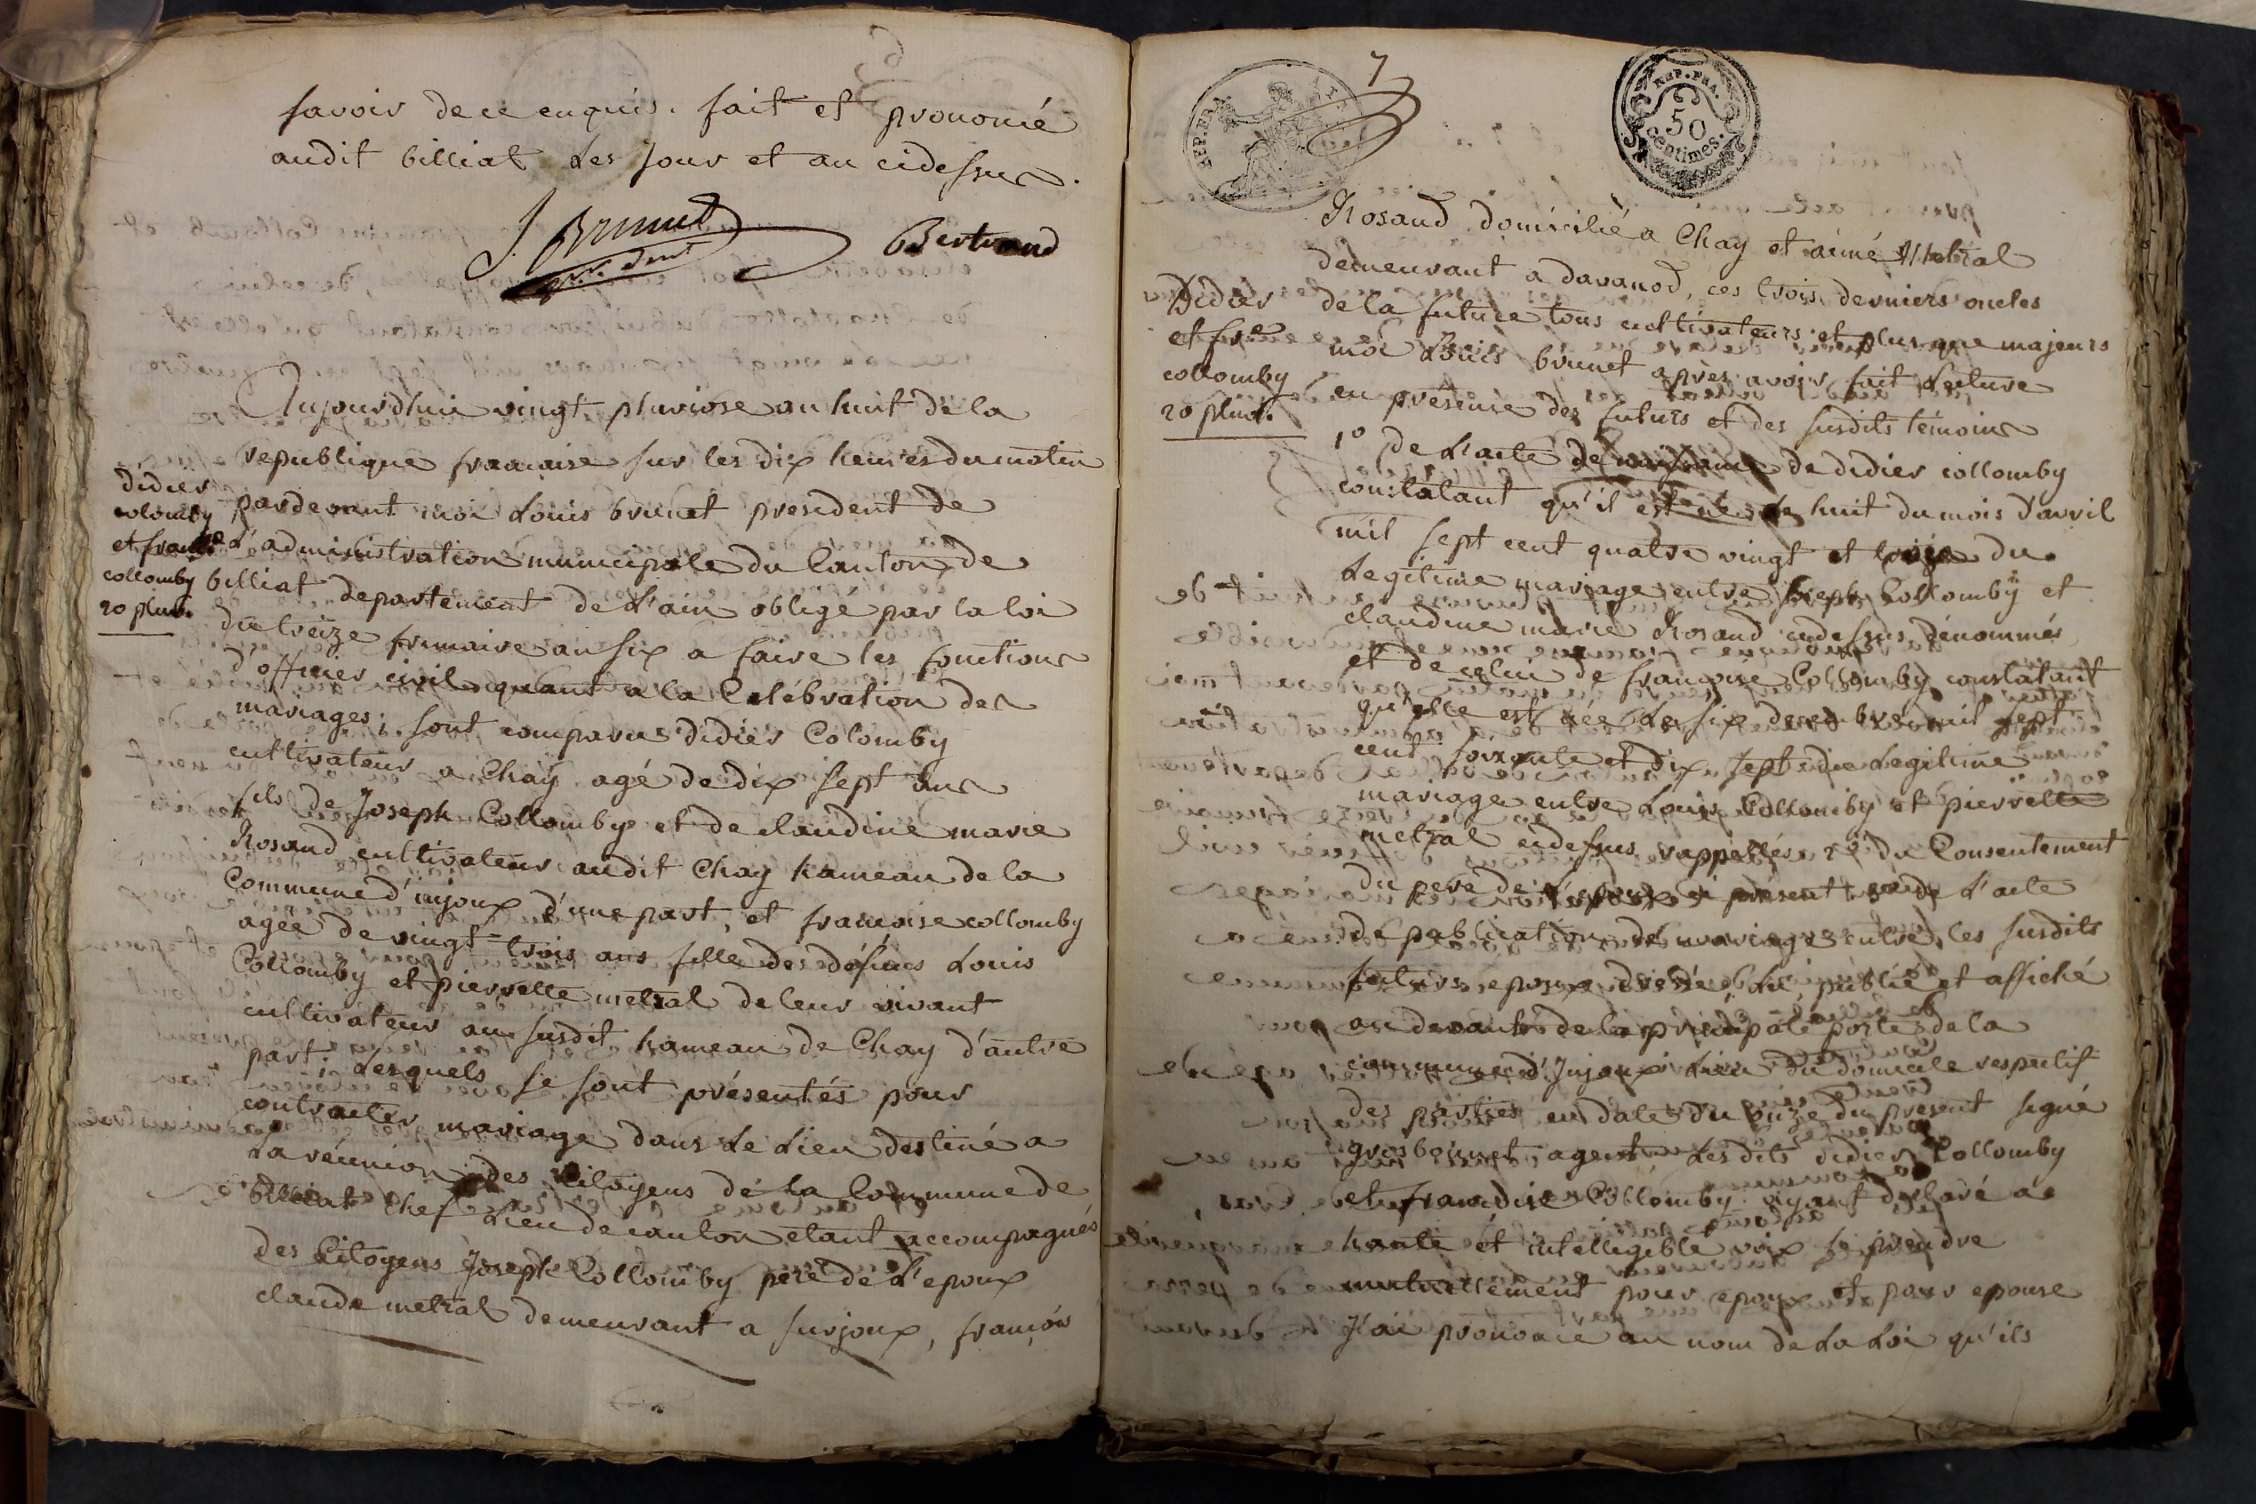 savoir de ce enquis. fait et prononcé
audit billiat les jour et an cidessus.
J. Brunet
Bertrand
Aujourdhui vingt pluviose an huit de la
republique francaise sur les dix heures du matin
didier
colomby
et francse
collomby
20 pluv.
pardevant moi Louis brunet president de
l'administration municipale du Canton de
billiat departement de l'ain obligé par la loi
du treize frimaire an six a faire les fonctions
d'officier civil quant a la Celébration des
mariages; sont comparus didier Colomby
cultivateur a Chay agé de dix sept ans
fils de Joseph Collomby et de claudine marie
Rosand cultivateur audit Chay hameau de la
Commune d'injoux d'une part, et francoise collomby
agée de vingt trois ans fille des défunts Louis
Collomby et pierrette metral de leur vivant
cultivateur au susdit hameau de Chay d'autre
part; Lesquels se sont présentés pour
contracter mariage dans le Lieu destiné a
La réunion des Citoyens de la Commune de
billiat chef Lieu de canton etant accompagnés
des Citoyens Joseph Collomby pere de l'epoux
claude metral demeurant a surjoux, francois
7
REP. FRA.
REP. FRA.
50
centimes.
Rosand domicilié a Chay et aimé Metral
demeurant a davanod, ces trois derniers oncles
Didier
et frse
collomby
20 pluv.
de la future tous cultivateurs et plus que majeurs
moi Louis brunet apres avoir fait Lecture
en présence des futurs et des susdits témoins
1° de L'acte de naissance de didier collomby
constatant qu'il est né le huit du mois d'avril
mil sept cent quatre vingt et trois du
Legitime mariage entre Joseph Collomby et
claudine marie Rosand cidessus dénommés
et de celui de francoise Collomby constatant
qu'elle est née le six decembre mil sept
cent soixante et dix sept du Legitime
mariage entre Louis Collomby et pierrette
metral cidessus rappellés, 2° du Consentement
du pere de l'epoux ci présent, de L'acte
de publication de mariage entre les susdits
futurs epoux dressé, lu, publié et affiché
au devant de la principale porte de la
commune d'Injoux Lieu du domicile respectif
des parties en date du onze du present signé
grosbournet agent Lesdits didier Collomby
et francoise Collomby ayant déclaré a
haute et intelligible voix se prendre
mutuellement pour epoux et pour epouse
J'ai prononcé au nom de La Loi qu'ils